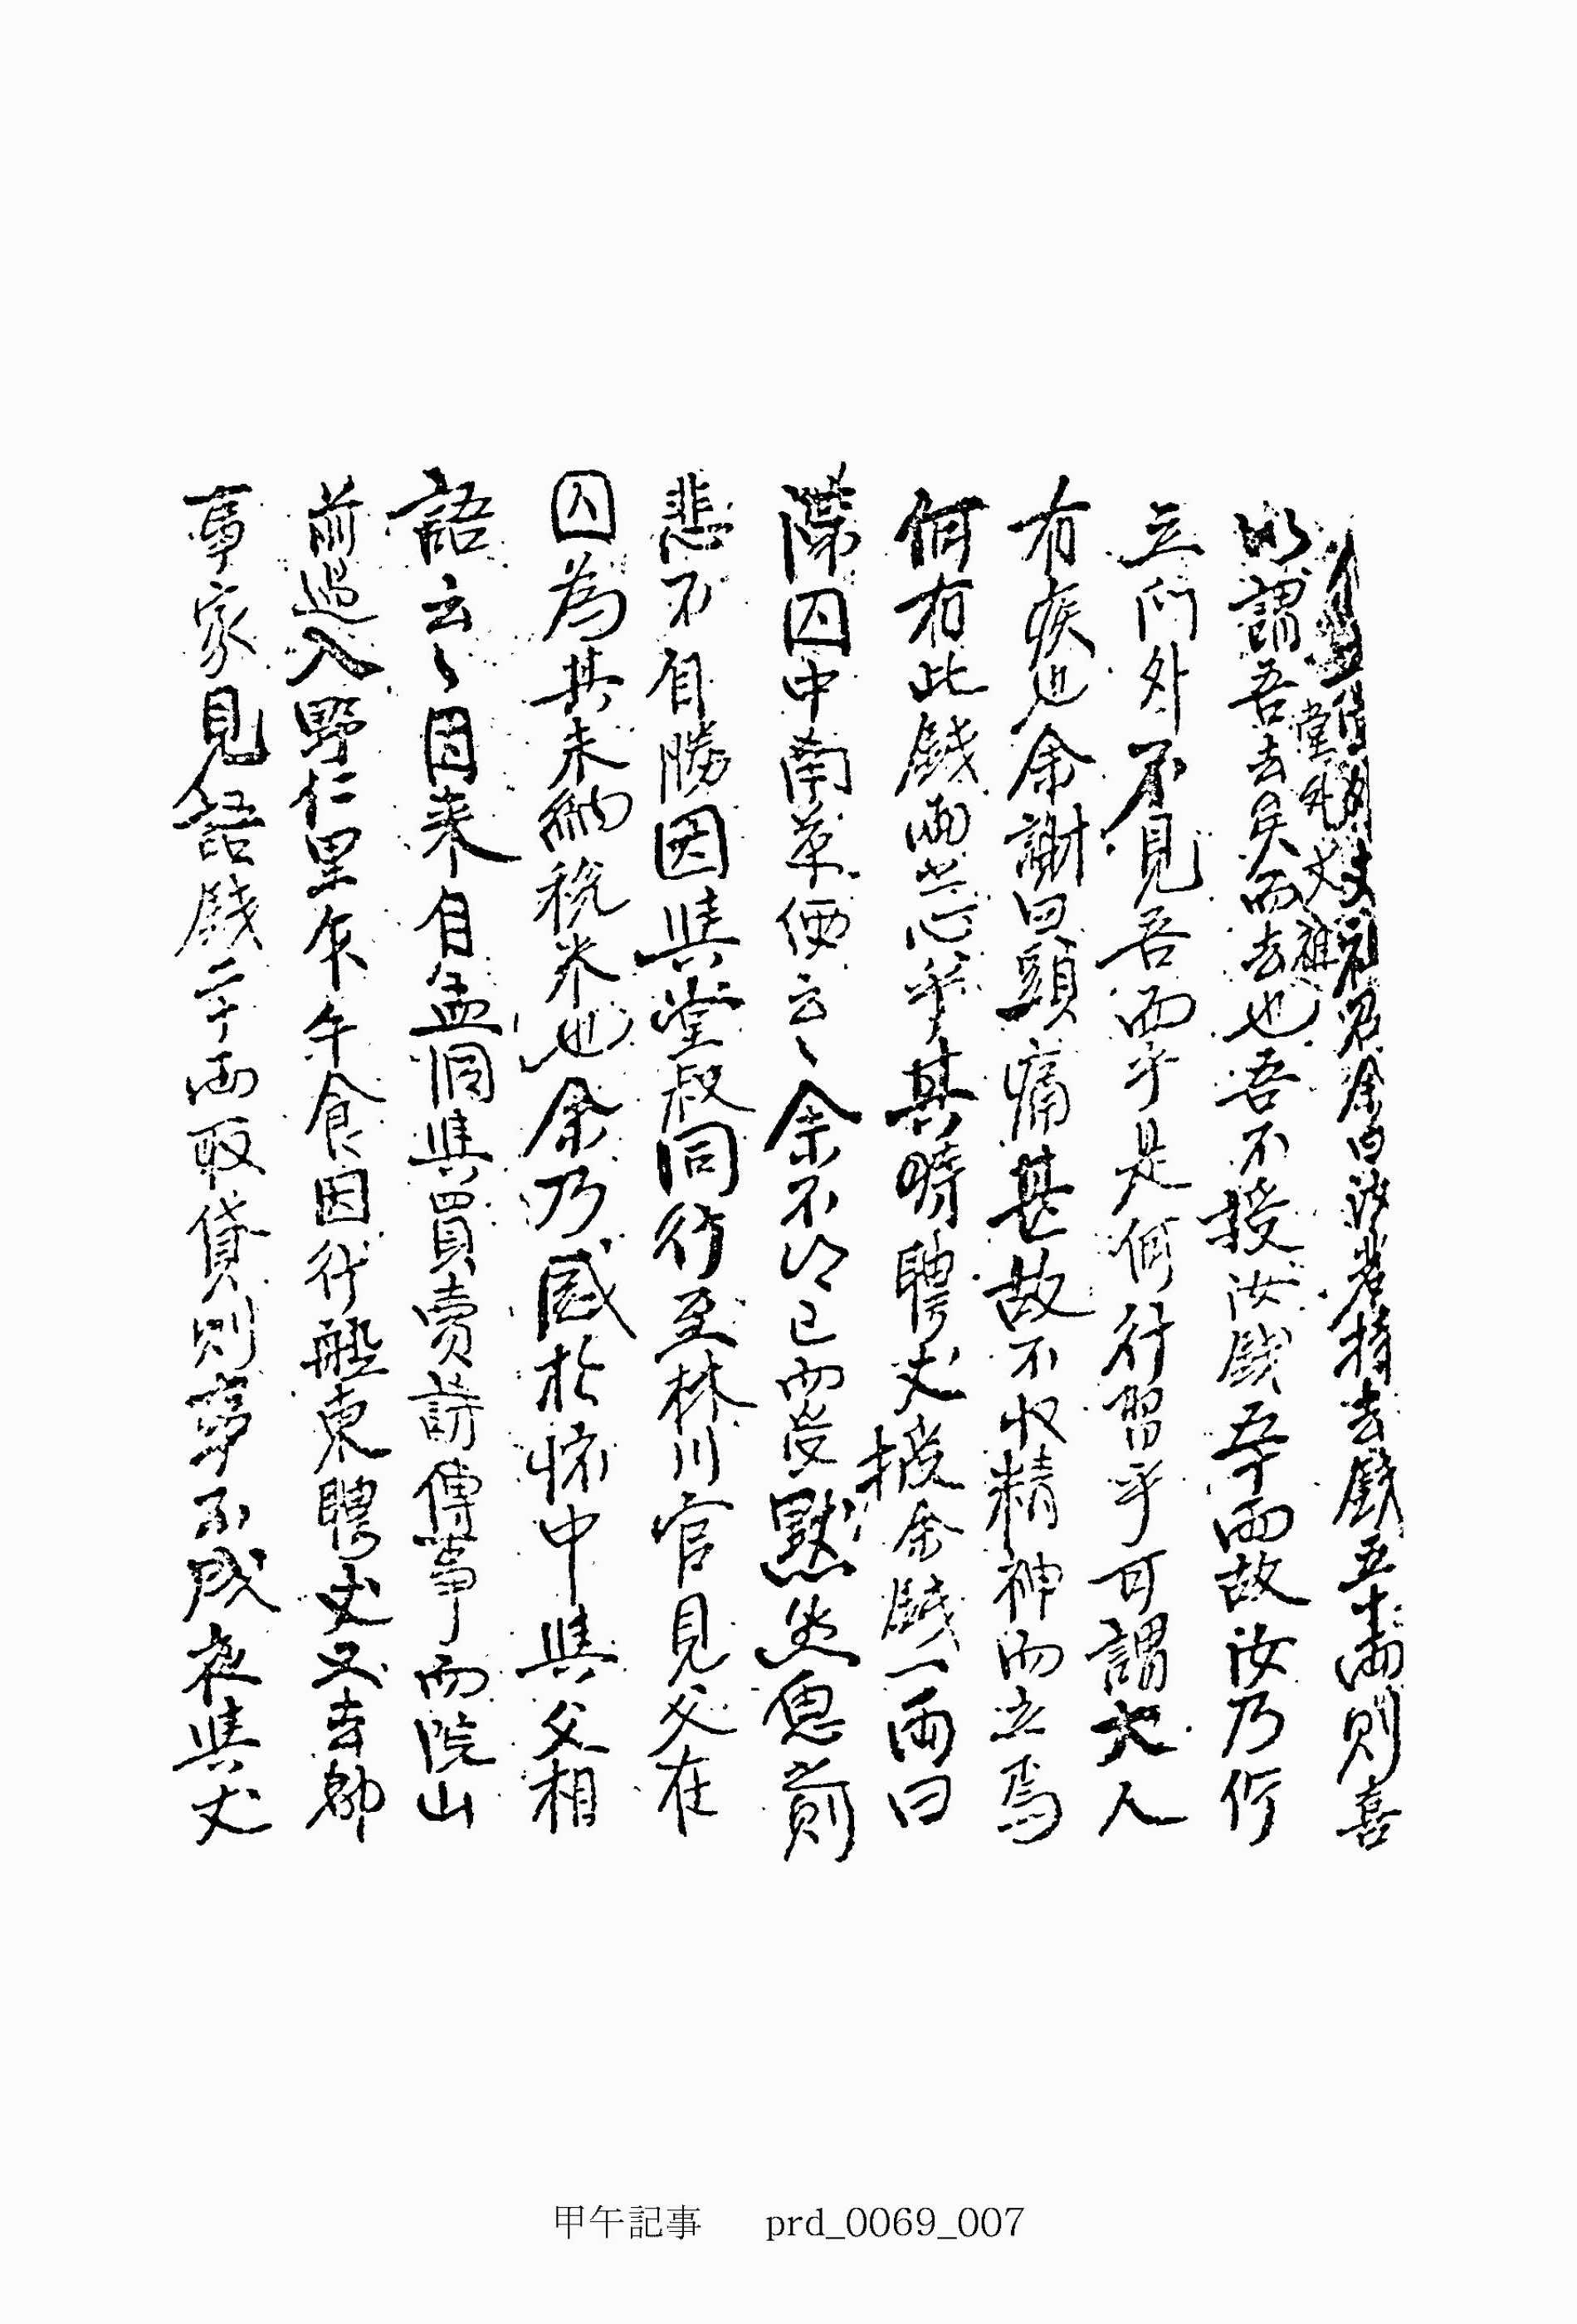 召余曰汝若持去錢五十兩則喜
堂外丈祖
以謂吾去矣而去也吾不授汝錢五十兩故汝乃佇
立門外不見吾而乎是何行習乎可謂地人
有疾也余謝曰頭痛甚故不收精神而立焉
何有此錢兩並心乎其時聘丈授余錢一兩曰
渫囚中南草価云々余不得已而受默然思前
悲不自勝因與堂叔同行至林川官見父在
囚為其未納稅米也余乃感於懷中與父相
語云々因來自孟洞與買賣訪傳事而院山
前過入野仁里乍午食因行船東聘丈又去鄉
事家見語錢二十兩取貸則事不成夜與丈
甲午記事 prd_0069_007